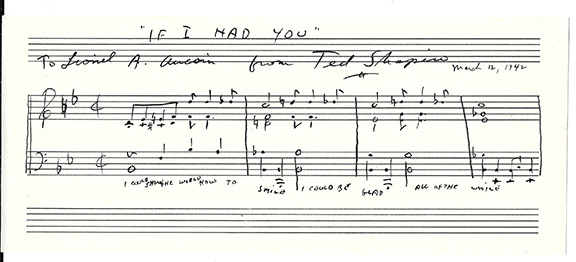 "IF I HAD YOU"
To Lionel A. Aucoin from Ted Shapiro March 12, 1942
I COULD SHOW THE WORLD HOW TO SMILE I COULD BE GLAD ALL OF THE WHILE